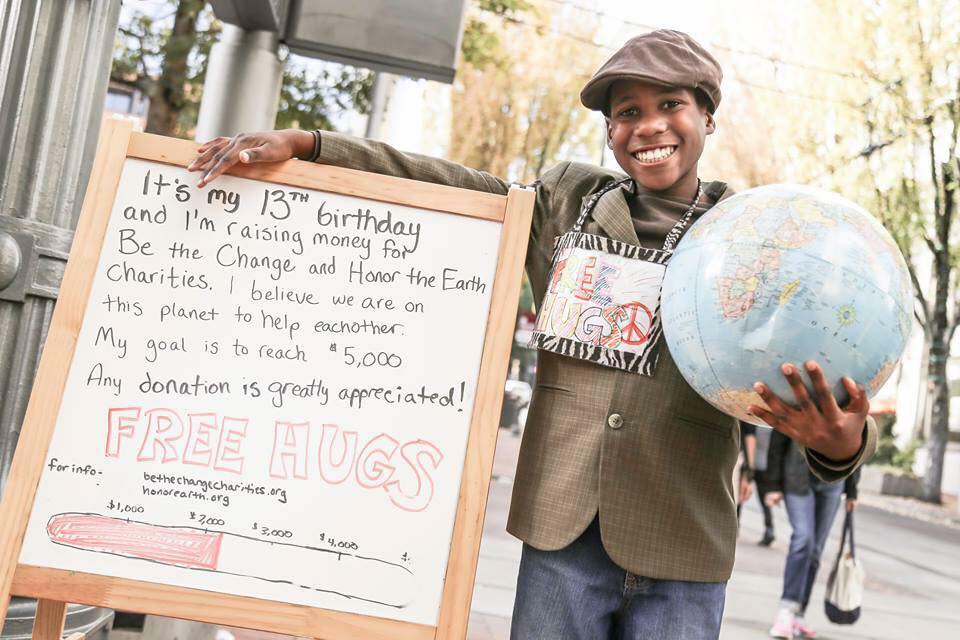 It's my 13TH birthday
and I'm raising money for
Be the Change and Honor the Earth
Charities. I believe we are on
this planet to help eachother.
My goal is to reach $5,000
Any donation is greatly appreciated!
FREE HUGS
for info-
bethechangecharities.org
honorearth.org
$1,000 $2,000 $3,000 $4,000 $
FREE
HUGS